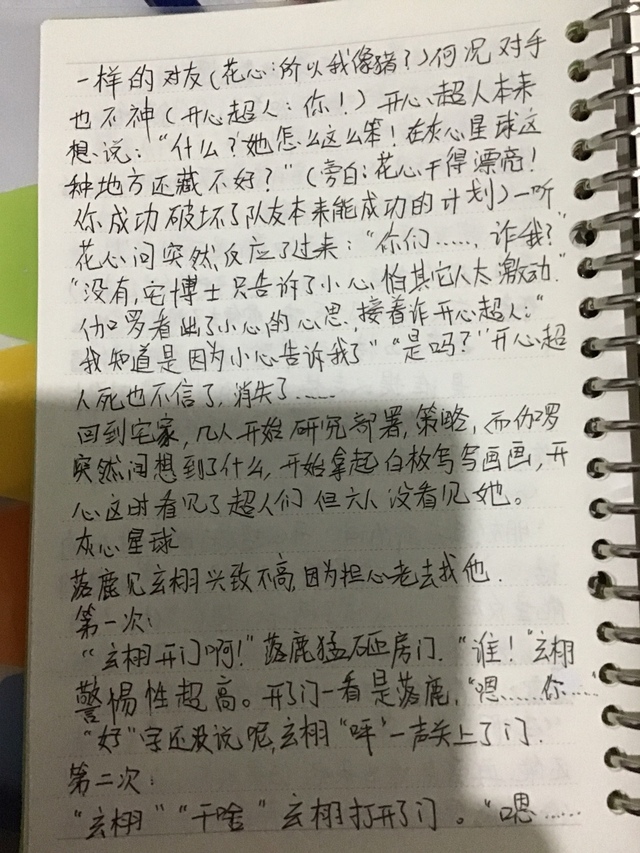 一样的对友(花心:所以我像猪?)何况对手
也不神(开心超人:你!)开心超人本来
想说:“什么?她怎么这么笨!在灰心星球这
种地方还藏不好?”(旁白:花心干得漂亮!
你成功破坏了队友本来能成功的计划)一听
花心问突然反应了过来:“你们……,诈我?”
“没有,宅博士只告诉了小心,怕其它人太激动.”
伽罗看出了小心的心思,接着诈开心超人:“
我知道是因为小心告诉我了”“是吗?”开心超
人死也不信了,消失了……
回到宅家,几人开始研究部署,策略,而伽罗
突然间想到了什么,开始拿起白板写写画画,开
心这时看见了超人们但六人没看见她。
灰心星球
落鹿见玄栩兴致不高,因为担心老去找他.
第一次:
“玄栩开门啊!”落鹿猛砸房门.“谁!”玄栩
警惕性超高。开了门一看是落鹿,“嗯……你……”
“好”字还没说呢,玄栩“呯”一声关上了门.
第二次:
“玄栩”“干啥”玄栩打开了门。“嗯……